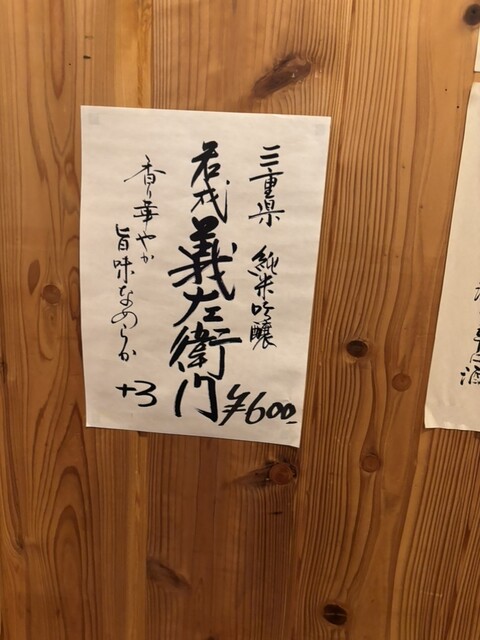 三重県 純米吟醸
若戎 義左衛門
¥600-
香り華やか
旨味なめらか
+3